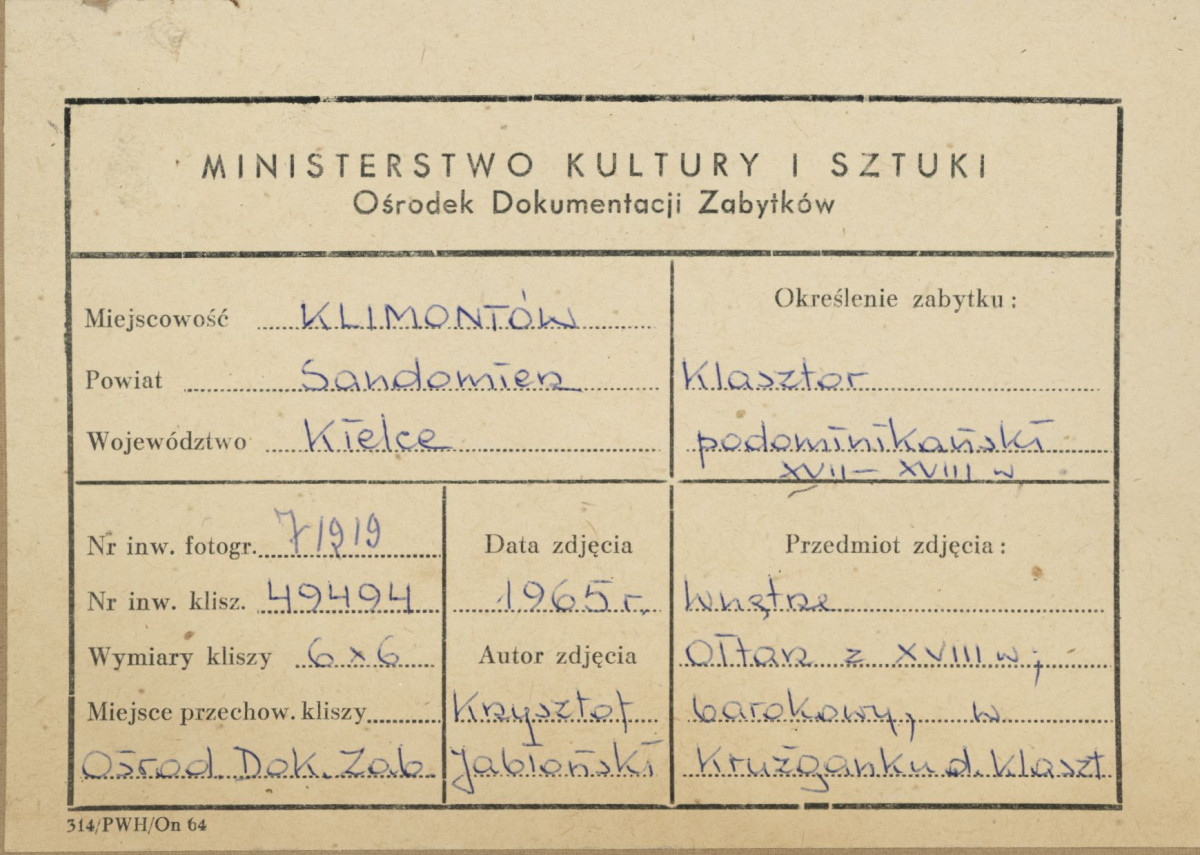 MINISTERSTWO KULTURY I SZTUKI
Ośrodek Dokumentacji Zabytków
Miejscowość KLIMONTÓW
Powiat Sandomierz
Województwo Kielce
Określenie zabytku:
Klasztor
podominikański
XVII – XVIII w
Nr inw. fotogr. 71919
Nr inw. klisz. 49494
Wymiary kliszy 6 x 6
Miejsce przechow. kliszy
Ośrod. Dok. Zab.
Data zdjęcia
1965 r.
Autor zdjęcia
Krzysztof
Jabłoński
Przedmiot zdjęcia:
Wnętrze
Ołtarz z XVIII w;
barokowy, w
Krużganku d. Klaszt
314/PWH/On 64